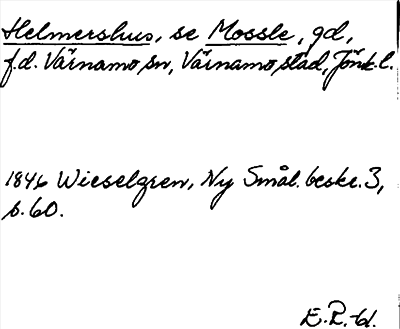 Helmershus, se Mossle, gd,
f.d. Värnamo sn, Värnamo stad, Jönk.l.
1846 Wieselgren, Ny Smål. beskr. 3,
s. 60.
E.R-d.